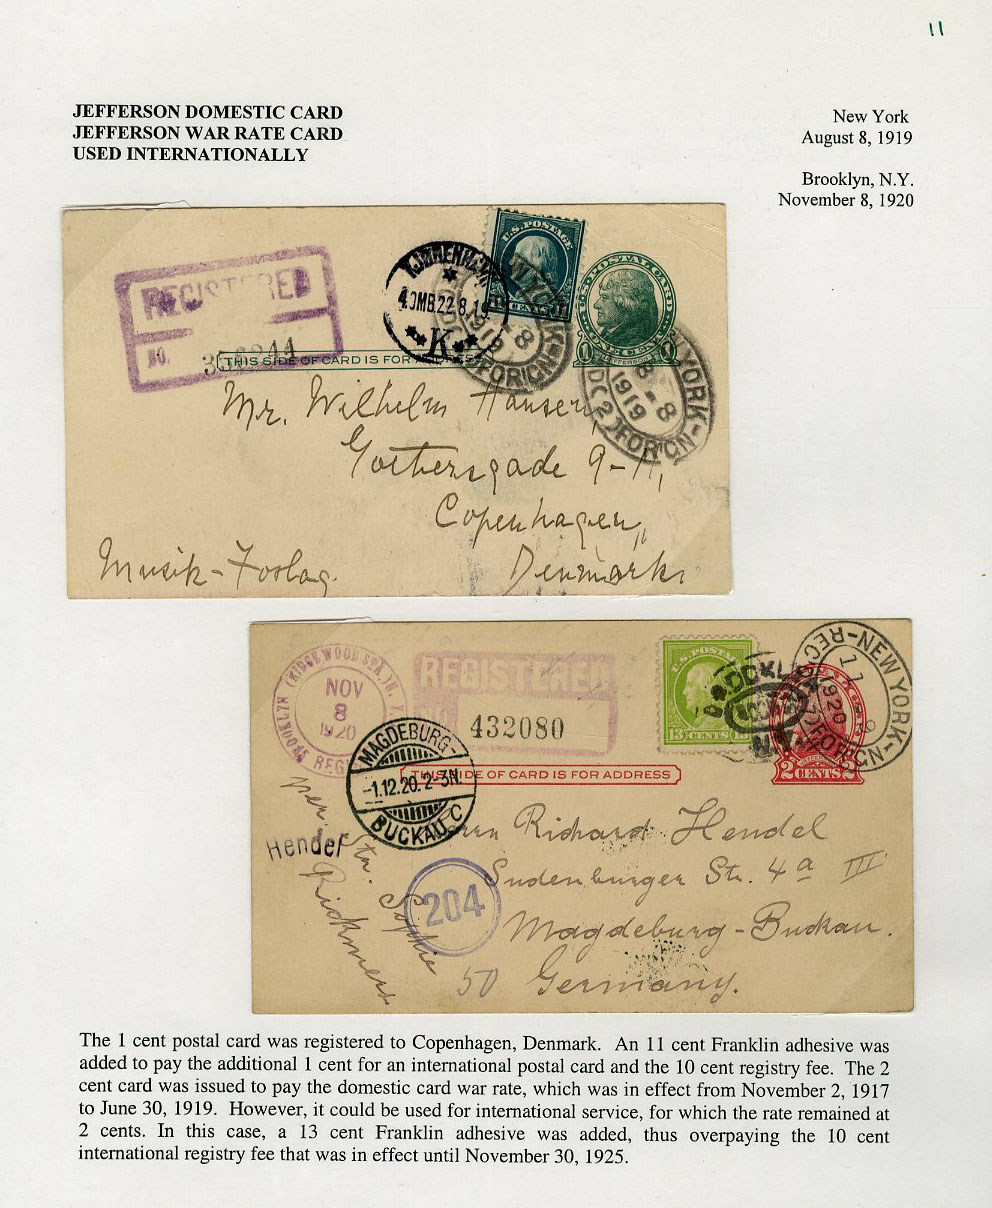 11
JEFFERSON DOMESTIC CARD
JEFFERSON WAR RATE CARD
USED INTERNATIONALLY
New York
August 8, 1919
Brooklyn, N.Y.
November 8, 1920
REGISTERED
NO.
KJØBENHAVN
4.OMB. 22.8.19
K
U.S. POSTAGE
CENTS
U.S. POSTAL CARD
1 ONE CENT 1
JEFFERSON
THIS SIDE OF CARD IS FOR ADDRESS
YORK-N
8-8
1919
FOR'GN
YORK-N
8-8
1919
FOR'GN
Mr. Wilhelm Hansen
Gothersgade 9-11,
Copenhagen,
Denmark.
Musik-Forlag.
BROOKLYN (RIDGEWOOD STA.) N.Y.
NOV
8
1920
REG
REGISTERED
NO.
432080
U.S. POSTAGE
13 CENTS 13
NEW YORK-N
1920
2 CENTS 2
THIS SIDE OF CARD IS FOR ADDRESS
MAGDEBURG-
-1.12.20. 2-3N.
BUCKAU C
Herrn Richard Hendel
Sudenburger Str. 4a III
Magdeburg-Buckau.
50 Germany.
Hendel
per
Sophie
Rickmers
204
The 1 cent postal card was registered to Copenhagen, Denmark. An 11 cent Franklin adhesive was
added to pay the additional 1 cent for an international postal card and the 10 cent registry fee. The 2
cent card was issued to pay the domestic card war rate, which was in effect from November 2, 1917
to June 30, 1919. However, it could be used for international service, for which the rate remained at
2 cents. In this case, a 13 cent Franklin adhesive was added, thus overpaying the 10 cent
international registry fee that was in effect until November 30, 1925.